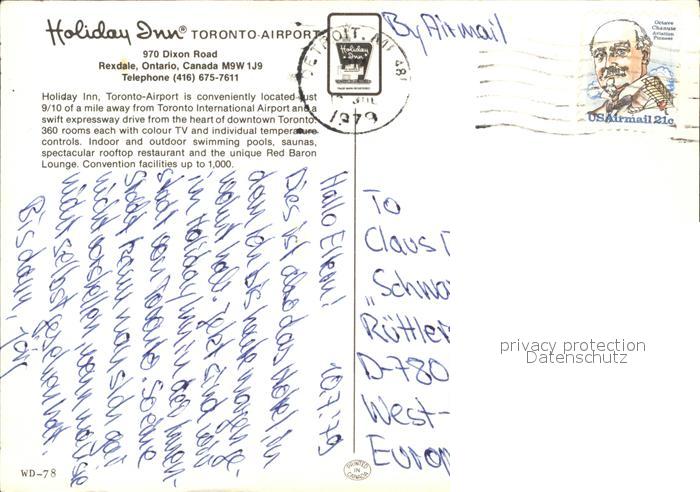 Holiday Inn® TORONTO-AIRPORT
970 Dixon Road
Rexdale, Ontario, Canada M9W 1J9
Telephone (416) 675-7611
Holiday Inn, Toronto-Airport is conveniently located just
9/10 of a mile away from Toronto International Airport and a
swift expressway drive from the heart of downtown Toronto.
360 rooms each with colour TV and individual temperature
controls. Indoor and outdoor swimming pools, saunas,
spectacular rooftop restaurant and the unique Red Baron
Lounge. Convention facilities up to 1,000.
Holiday Inn
DETROIT, MI 48
1979
By Airmail
Octave
Chanute
Aviation
Pioneer
USAirmail 21c
Hallo Eltern! 10.7.79
Dies ist also das Hotel in
dem ich bis heute morgen ge-
wohnt hab. Jetzt sind wir
im Holiday Inn in der Innen-
stadt von Toronto. So eine
Stadt kann man sich gar
nicht vorstellen, wenn man sie
nicht selbst gesehen hat.
Bis dann,
To
Claus
"Schwa
Rüttler
D-780
West-
Europ
privacy protection
Datenschutz
WD-78
PRINTED
IN
CANADA